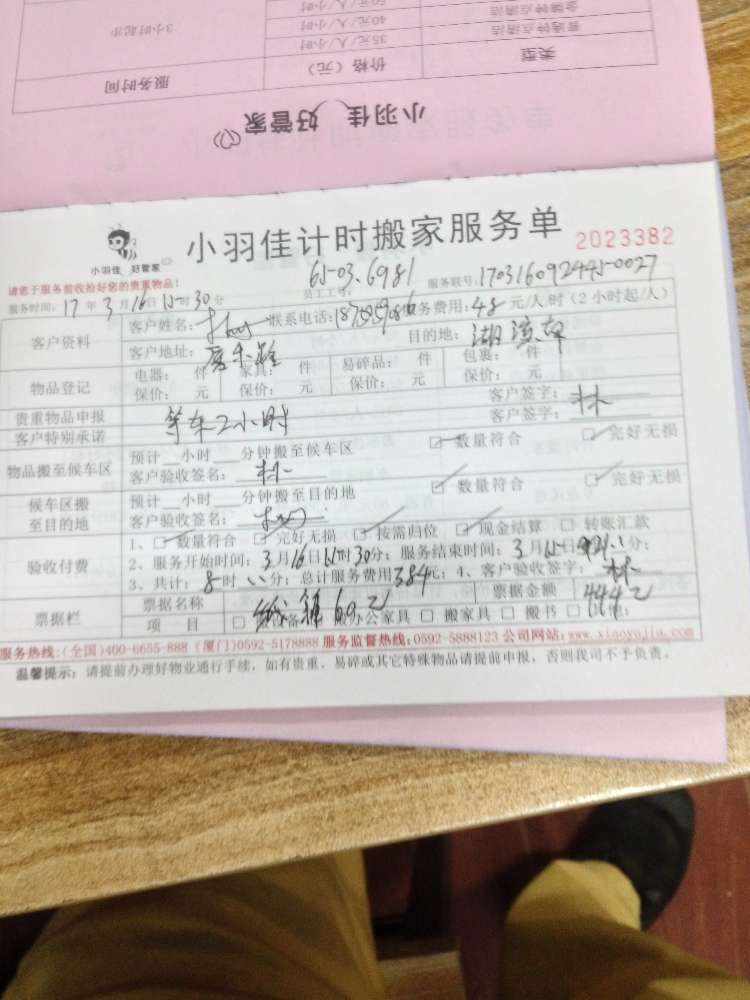 50元/人/小时
金牌钟点清洁 40元/人/小时 3小时起步
普通钟点清洁 35元/人/小时
类型 价格（元） 服务时间
小羽佳 好管家
小羽佳 好管家
小羽佳计时搬家服务单 2023382
请您于服务前收拾好您的贵重物品！
服务时间：17年3月16日15时30分 员工工号：61-03.6981 服务联号：
客户资料 客户姓名： 联系电话： 服务费用：48元/人/时（2小时起/人）
客户地址： 目的地：
物品登记 电器： 件 家具： 件 易碎品： 件 包裹： 件
保价： 元 保价： 元 保价： 元 保价： 元
贵重物品申报 客户签字：林
客户特别承诺 等车2小时 客户签字：
物品搬至候车区 预计 小时 分钟搬至候车区 数量符合 完好无损
客户验收签名：林
候车区搬至目的地 预计 小时 分钟搬至目的地 数量符合 完好无损
客户验收签名：
验收付费 1、□数量符合 □完好无损 □按需归位 □现金结算 □转账汇款
2、服务开始时间：3月16日15时30分；服务结束时间：3月
3、共计：8时 分；总计服务费用384元；4、客户验收签字：林
票据栏 票据名称 票据金额 444元
项 目 60元 办公家具 □ 搬家具 □ 搬书 □
服务热线：(全国)400-6655-888 (厦门)0592-5178888 服务监督热线：0592-5888123 公司网站：www.xiaoyujia.com
温馨提示：请提前办理好物业通行手续，如有贵重、易碎或其它特殊物品请提前申报，否则我司不予负责。